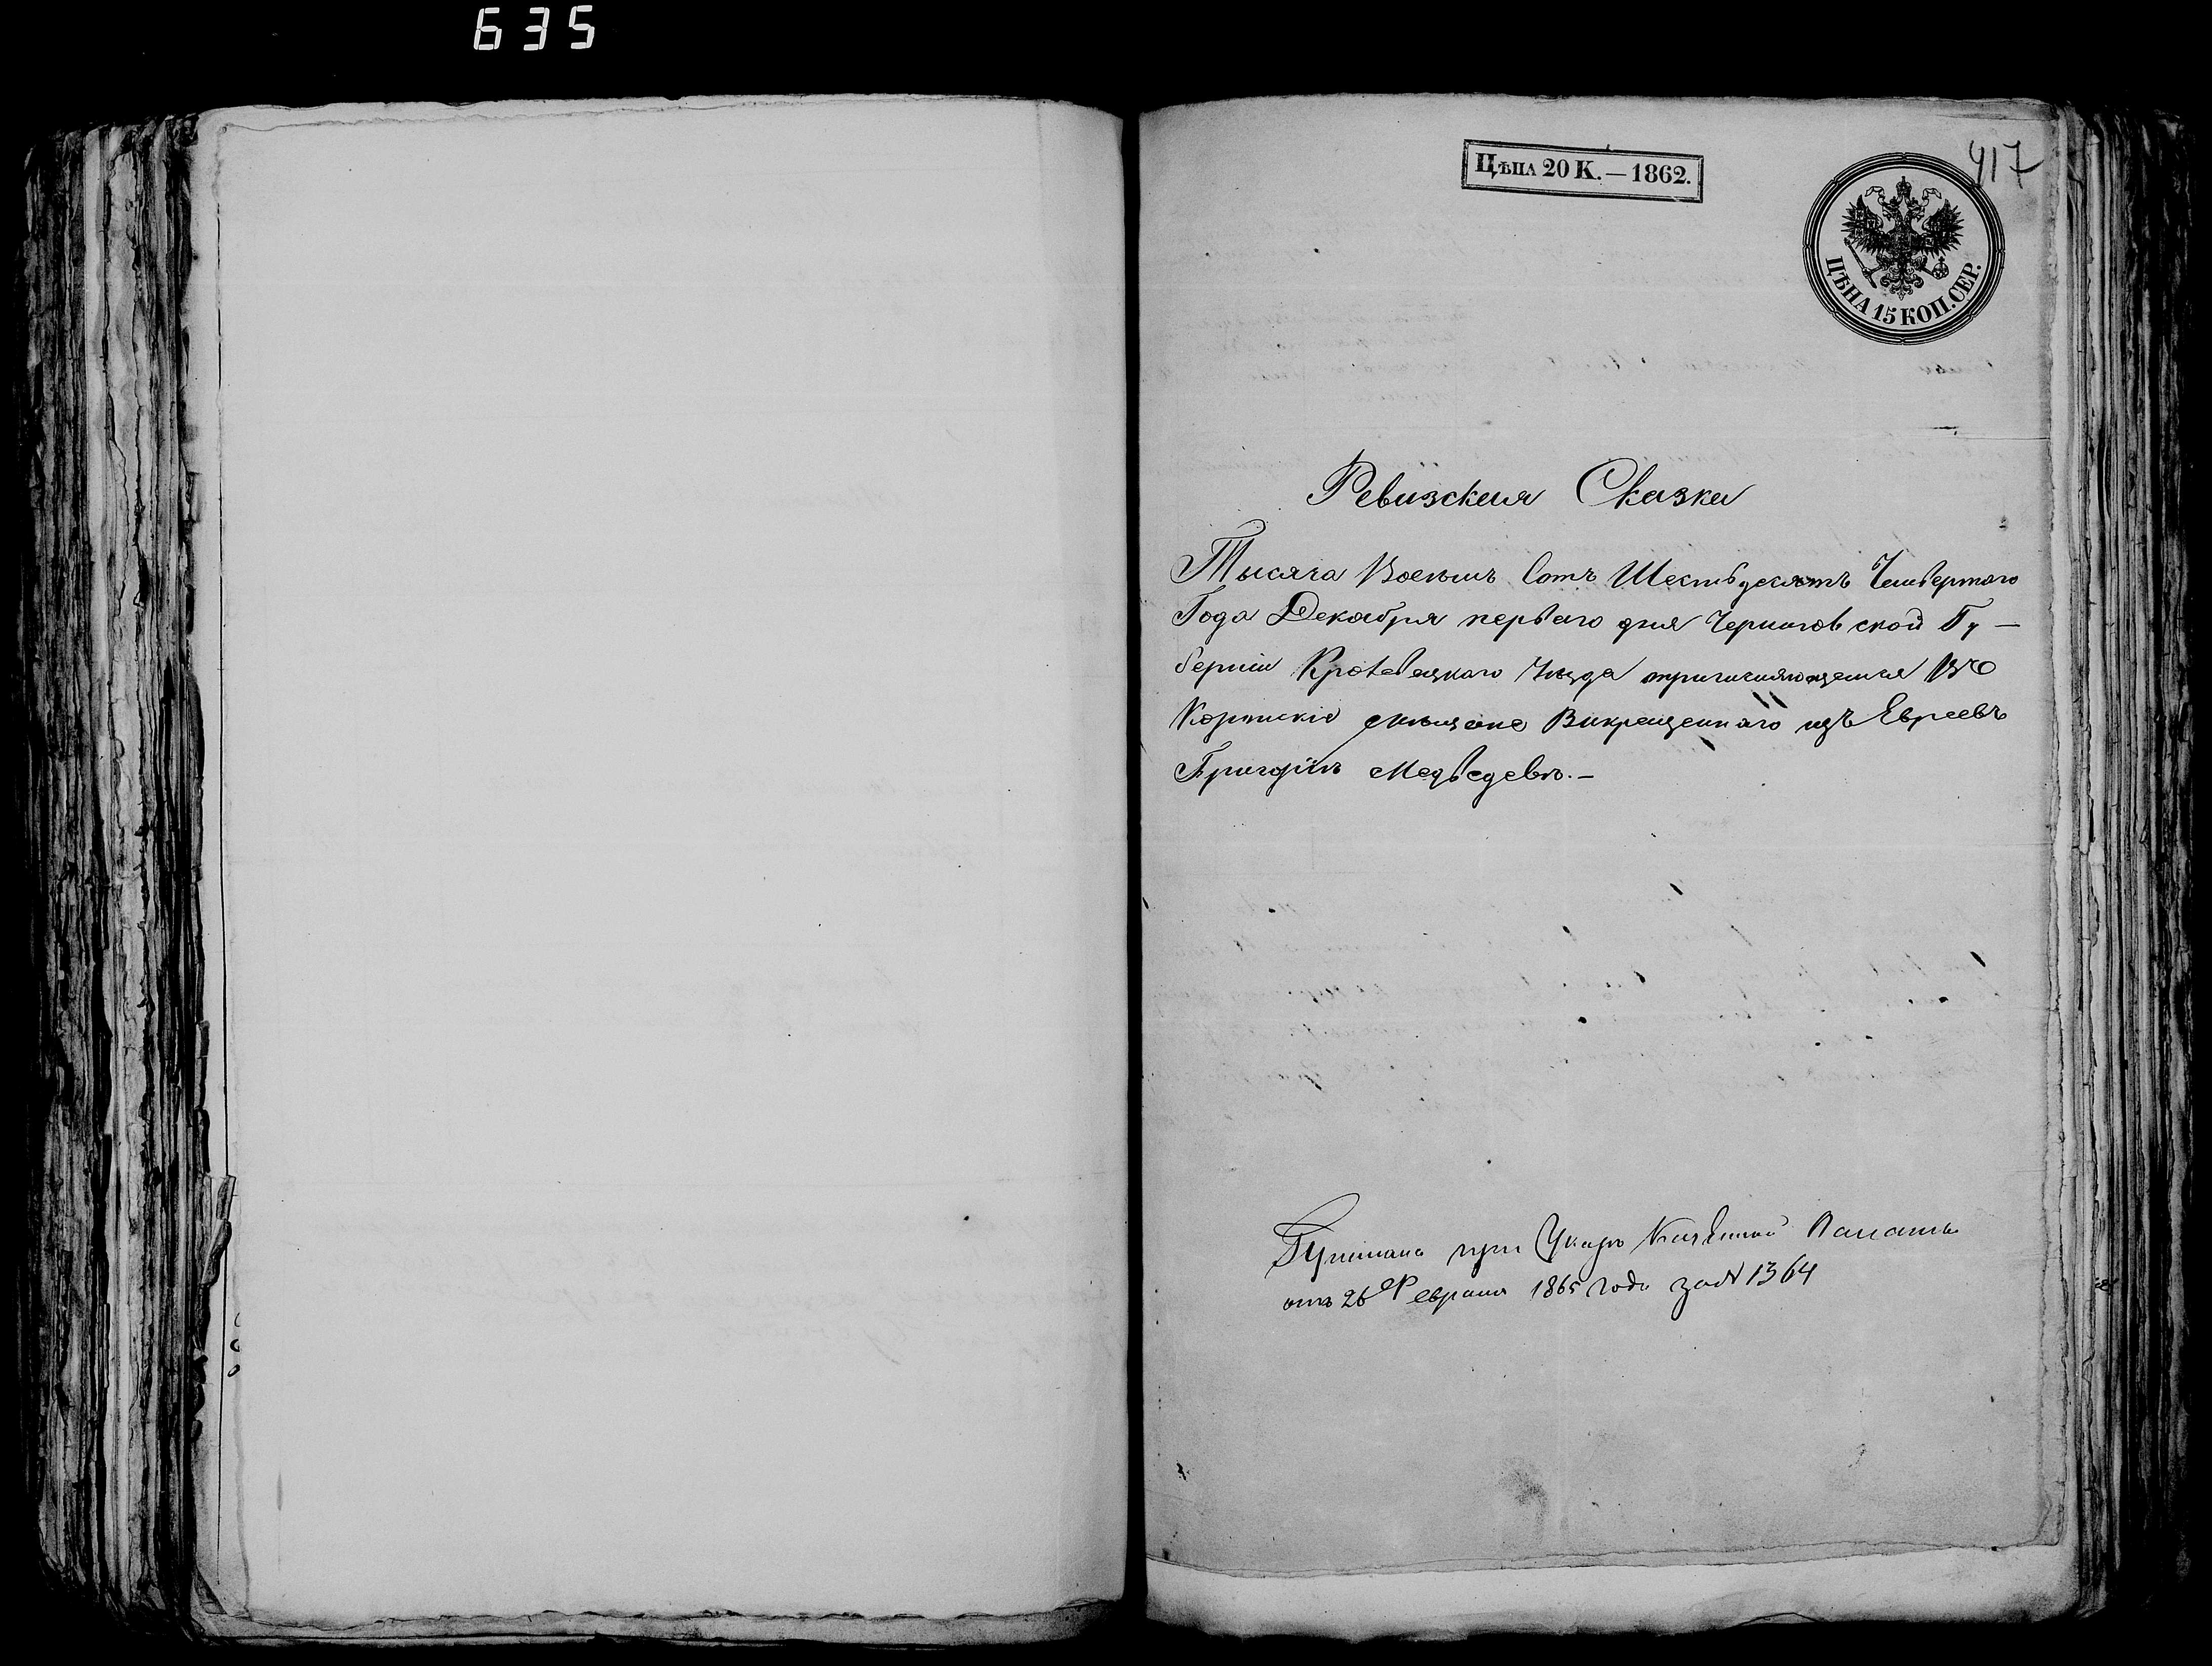 635
417
Цѣна 20 К. — 1862.
ЦѢНА 15 КОП. СЕР.
Ревизския Сказки
Тысяча Восемь Сотъ Шестьдесятъ Четвертого
Года Декабря перваго дня Черниговской Гу—
берніи Кролевецкаго Уѣзда причисляющемся Въ
Коропскіе мѣщане Викрещеннаго изъ Евреевъ
Григорій Медведевъ.—
при Указѣ Казенной Палаты
отъ 26 Февраля 1865 года за № 1364